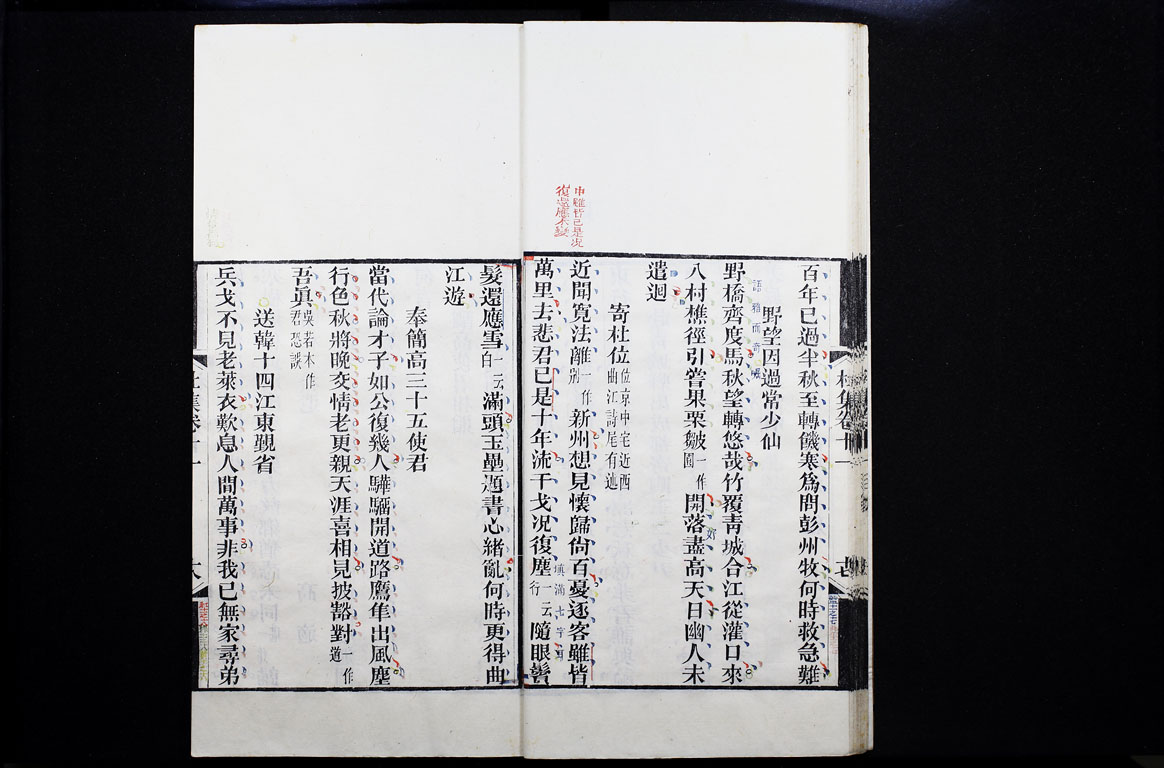 百年已過半秋至轉饑寒爲問彭州牧何時救急難
野望因過常少仙
野橋齊度馬秋望轉悠哉竹覆青城合江從灌口來
八村樵徑引嘗果栗皺一作開落盡高天日幽人未
遣迴
寄杜位位京中宅近西曲江詩尾有述
近聞寬法離一作別新州想見懷歸尙百憂逐客雖皆
萬里去悲君已是十年流干戈况復塵一云行隨眼鬢
髮還應雪一云白滿頭玉壘題書心緒亂何時更得曲
江遊
奉簡高三十五使君
當代論才子如公復幾人驊騮開道路鷹隼出風塵
行色秋將晚交情老更親天涯喜相見披豁對一作道
吾眞吳若本作君恐誤
送韓十四江東覲省
兵戈不見老萊衣歎息人間萬事非我已無家尋弟
申雖皆已是况
復還應不變
杜集卷十一